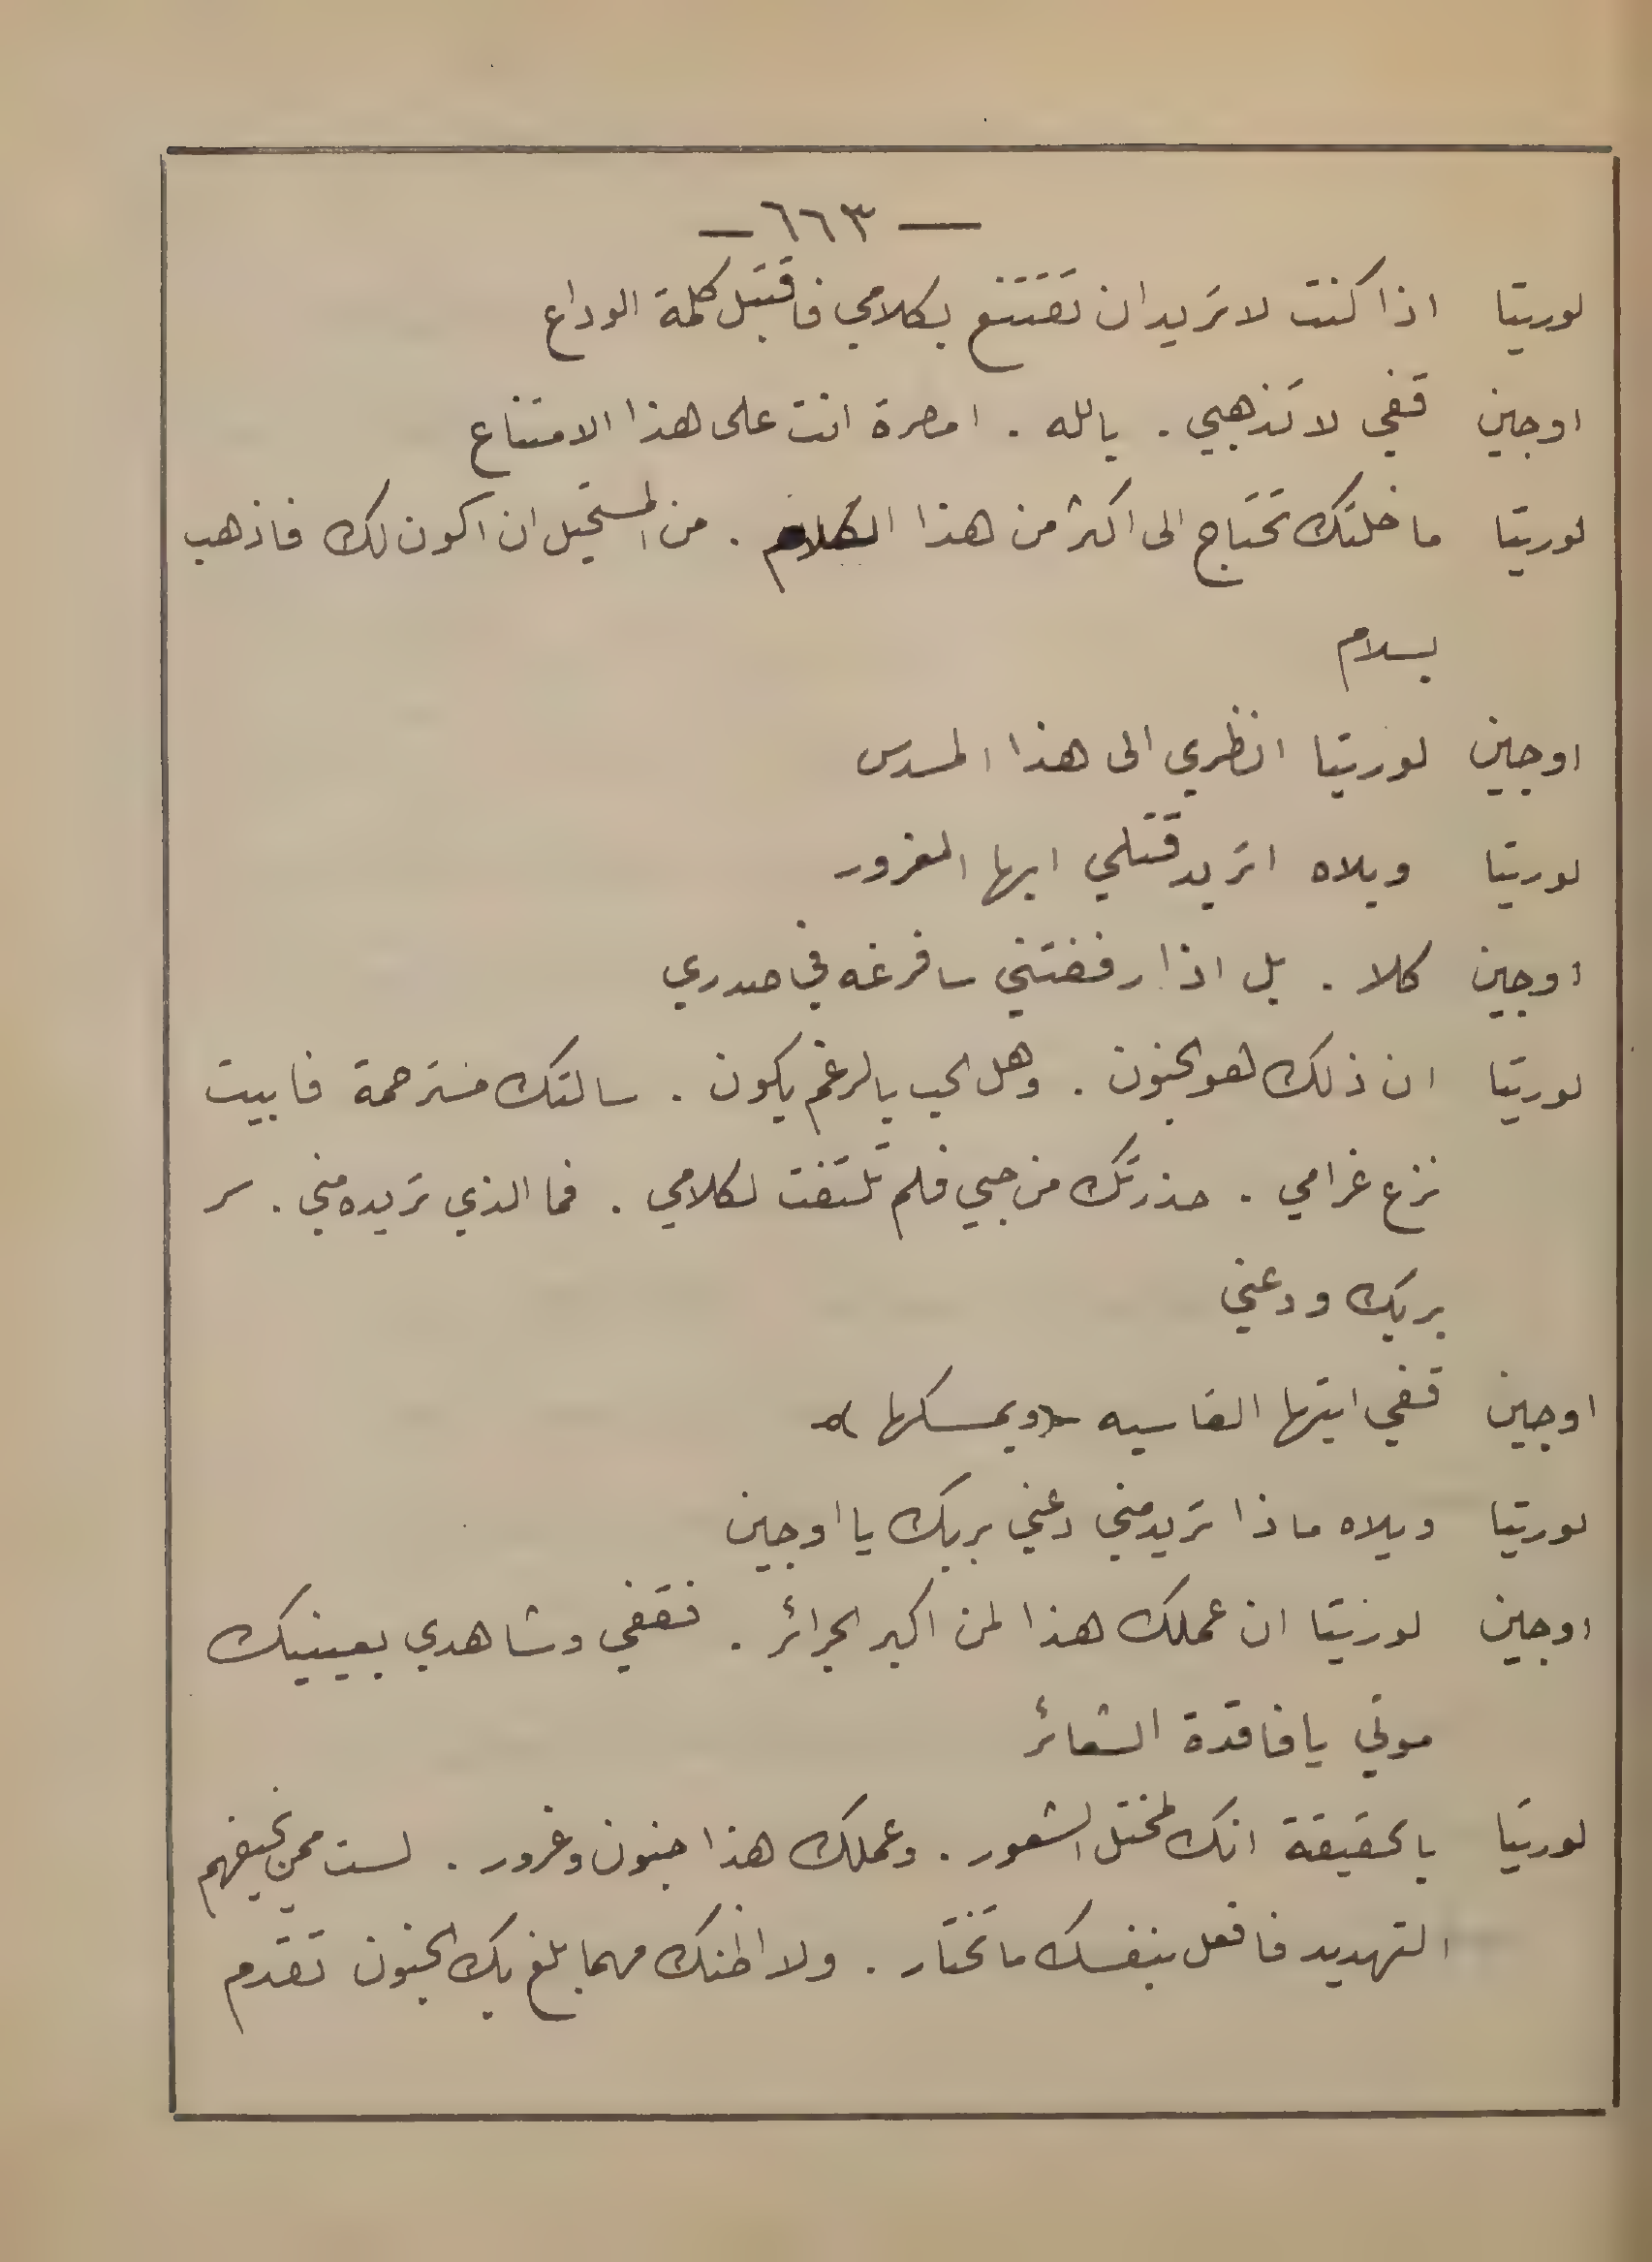 — ٦٦٣ —
لوريتا اذا كنت لا تريد ان تقتنع بكلامي فاقتبل كلمة الوداع
اوجين قفي لا تذهبي . بالله . امصرة انت على هذا الامتناع
لوريتا ما خلتك تحتاج الى اكثر من هذا الكلام . من المستحيل ان اكون لك فاذهب
بسلام
اوجين لوريتا انظري الى هذا المسدس
لوريتا ويلاه اتريد قتلي ايها المغرور
اوجين كلا . بل اذا رفضتني سافرغه في صدري
لوريتا ان ذلك لهو الجنون . وهل الحب بالرغم يكون . سالتك مسترحمة فابيت
نزع غرامي . حذرتك من حبي فلم تلتفت لكلامي . فما الذي تريده مني . سر
بربك ودعني
اوجين قفي ايتها القاسيه «ويمسكها»
لوريتا ويلاه ماذا تريد مني دعني بربك يا اوجين
اوجين لوريتا ان عملك هذا لمن اكبر الجرائر . فقفي وشاهدي بعينيك
موتي يا فاقدة الشعائر
لوريتا بالحقيقة انك لمختل الشعور . وعملك هذا جنون وغرور . لست ممن يخيفهم
التهديد فافعل بنفسك ما تختار . ولا اظنك مهما بلغ بك الجنون تقدم